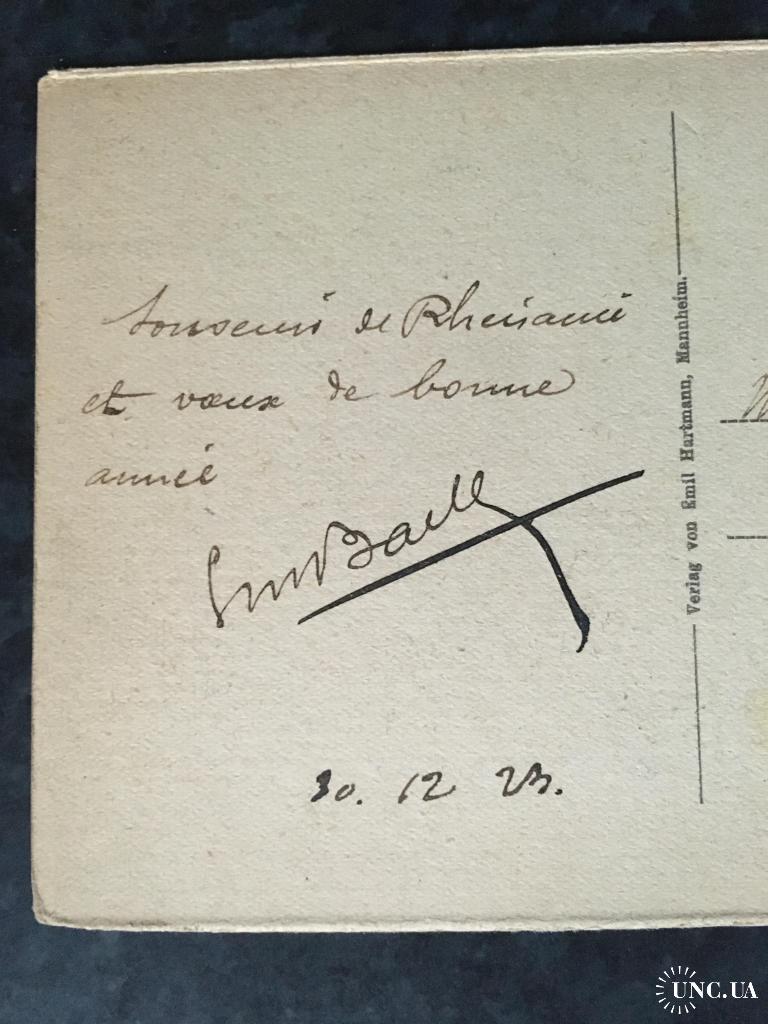 Souvenir de Rhénanie
et vœux de bonne
année
30. 12 23.
Verlag von Emil Hartmann, Mannheim.
UNC.UA